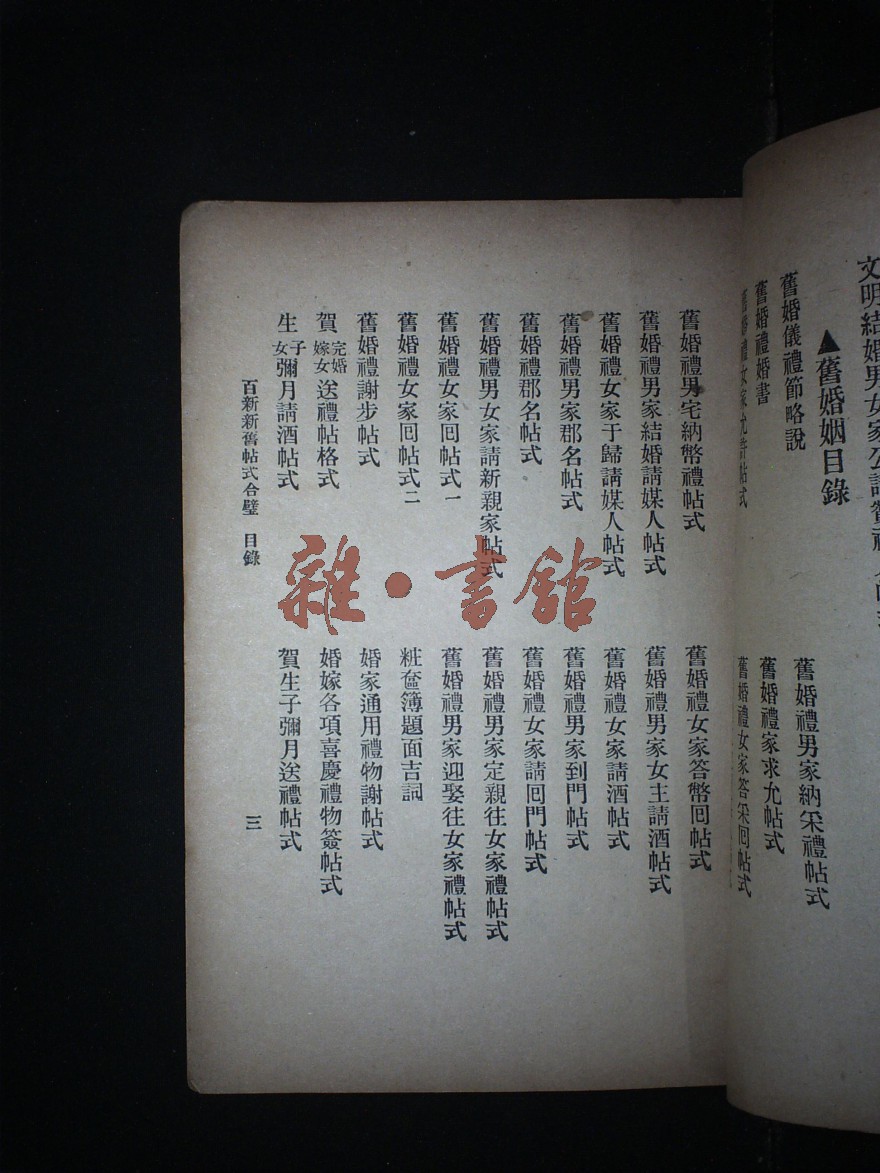 ▲舊婚姻目錄
舊婚儀禮節略說
舊婚禮男家納采禮帖式
舊婚禮婚書
舊婚禮家求允帖式
舊婚禮女家允許帖式
舊婚禮女家答采囘帖式
舊婚禮男宅納幣禮帖式
舊婚禮女家答幣囘帖式
舊婚禮男家結婚請媒人帖式
舊婚禮男家女主請酒帖式
舊婚禮女家于歸請媒人帖式
舊婚禮女家請酒帖式
舊婚禮男家郡名帖式
舊婚禮男家到門帖式
舊婚禮郡名帖式
舊婚禮女家請囘門帖式
舊婚禮男女家請新親家帖式
舊婚禮男家定親往女家禮帖式
舊婚禮女家囘帖式一
舊婚禮男家迎娶往女家禮帖式
舊婚禮女家囘帖式二
粧奩簿題面吉詞
舊婚禮謝步帖式
婚家通用禮物謝帖式
賀完婚嫁女送禮帖格式
婚嫁各項喜慶禮物簽帖式
生子女彌月請酒帖式
賀生子彌月送禮帖式
百新新舊帖式合璧 目錄 三
雜·書館